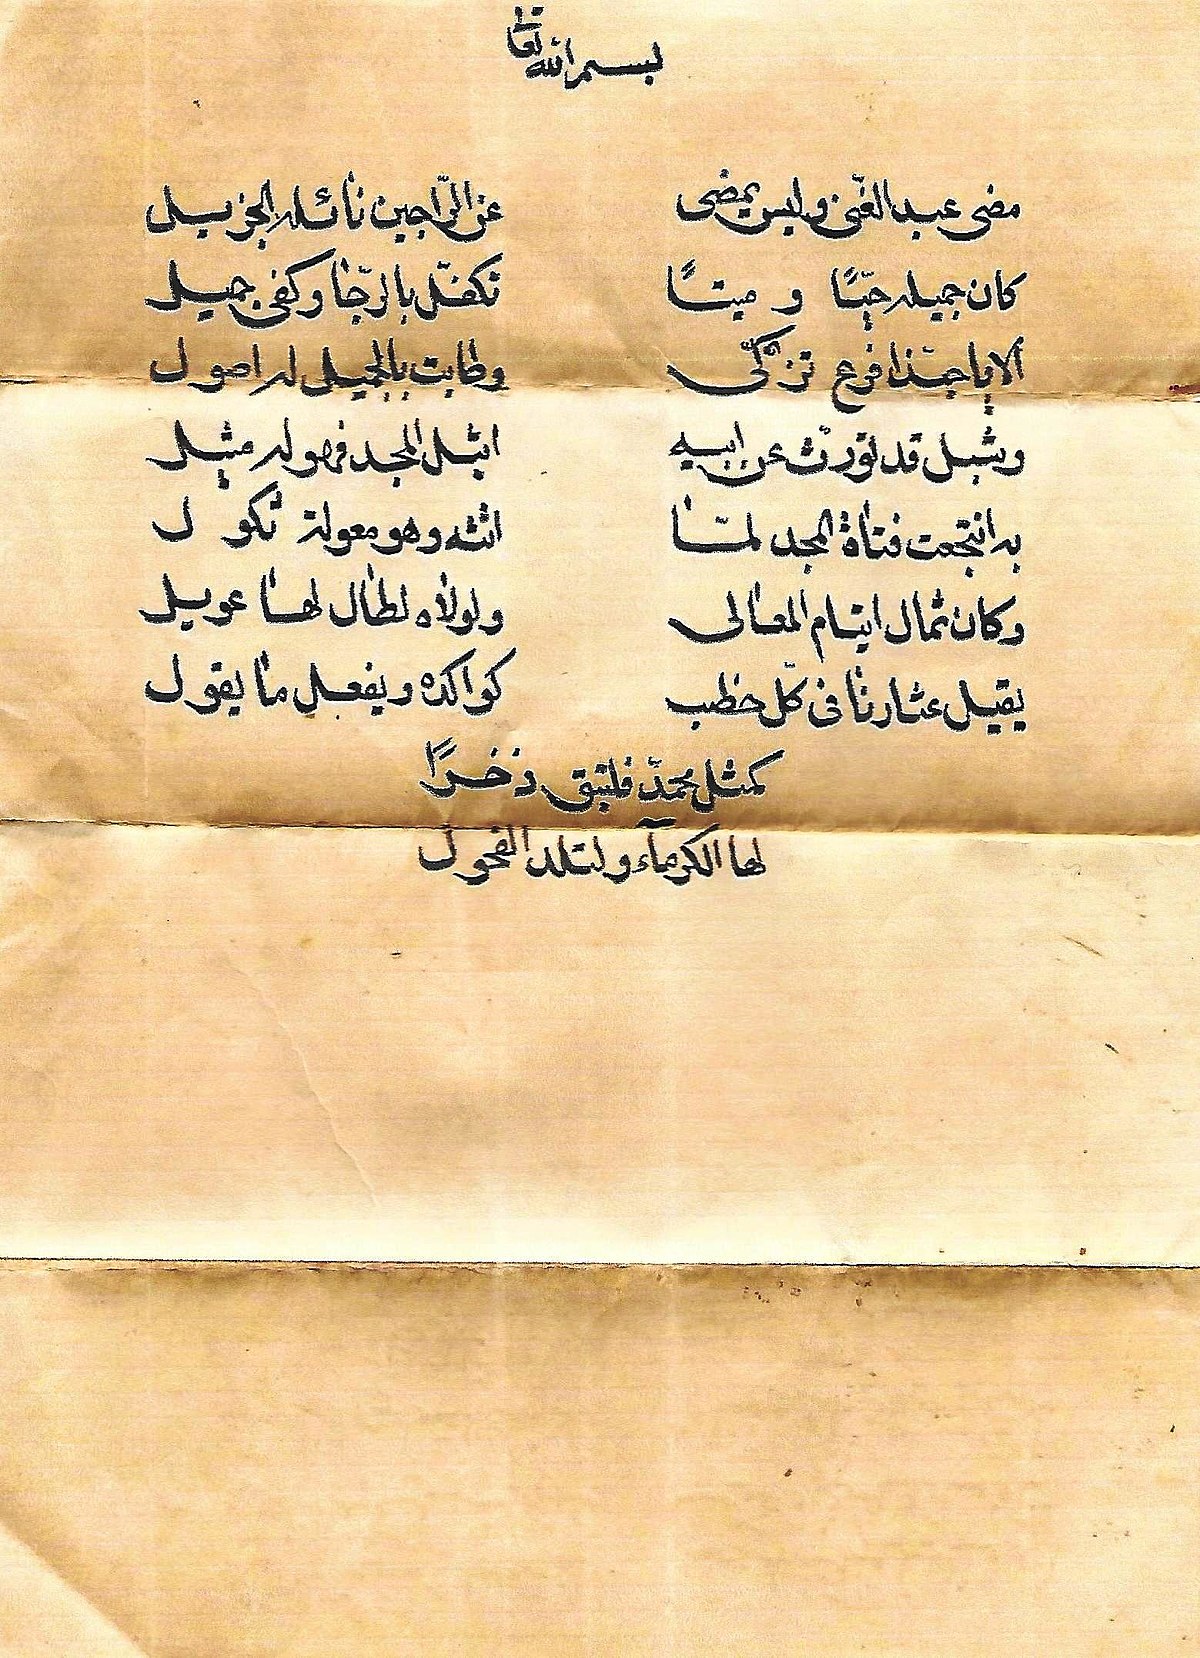 بسم الله تعالى
مضى عبد الغني وليس يمضى عن الراجين نائله الجزيل
كان جميله حيًا و ميتًا تكفّل بالرّجا وكفى جميل
ألا يا حبّذا فرع تزكّى وطابت بالجميل له اصول
وشبل قد تورّث عن ابيه اثيل المجد فهو له مثيل
به انتجعت فتاة المجد لمّا اتته وهو معولة ثكول
وكان ثمال ايتام المعالى ولولاه لطال لها عويل
يقيل عثارنا فى كلّ خطب ويفعل ما يقول
كمثل محمّد فلتبق ذخرًا
لها الكرمآء ولتلد الفحول